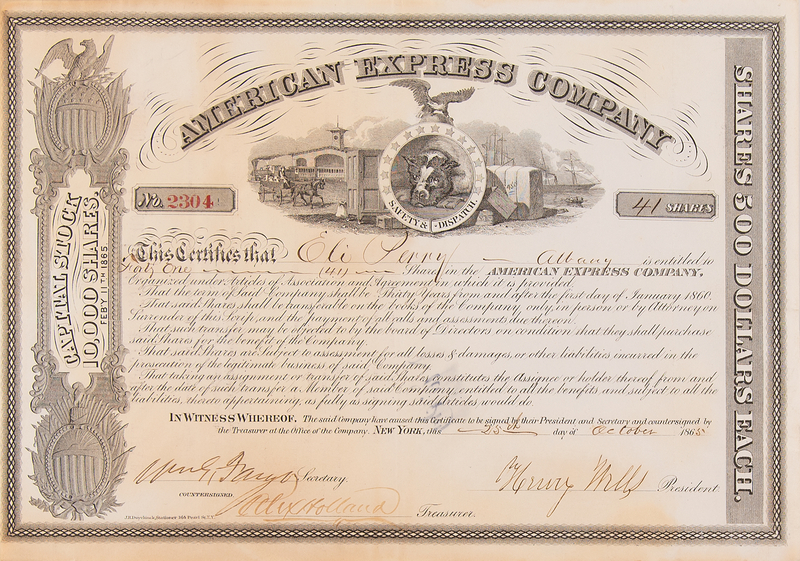 AMERICAN EXPRESS COMPANY
No. 2304
41 SHARES
SAFETY & DISPATCH
CAPITAL STOCK
10,000 SHARES.
FEBY 11TH 1865.
SHARES 500 DOLLARS EACH.
This Certifies that Eli Perry Albany is entitled to
Forty One (41) Shares in the AMERICAN EXPRESS COMPANY,
Organized under Articles of Association and Agreement in which it is provided.
That the term of said Company shall be Thirty Years from and after the first day of January 1860.
That said Shares shall be transferable on the books of the Company only, in person or by Attorney on
Surrender of this Scrip, and the Payment of all calls and assessments due thereon.
That such transfer may be objected to by the board of Directors on condition that they shall purchase
said Shares for the benefit of the Company.
That said Shares are Subject to assessment for all losses & damages, or other liabilities incurred in the
prosecution of the legitimate business of said Company.
That taking an assignment or transfer of said Shares constitutes the Assignee or holder thereof from and
after the date of such Transfer a Member of said Company, entitled to all the benefits and subject to all the
liabilities, thereto appertaining, as fully as signing said Articles would do.
IN WITNESS WHEREOF. The said Company have caused this Certificate to be signed by their President and Secretary and countersigned by
the Treasurer at the Office of the Company. NEW YORK, this 25th day of October 1865
Wm G. Fargo Secretary. Henry Wells President
COUNTERSIGNED.
Alex Holland Treasurer.